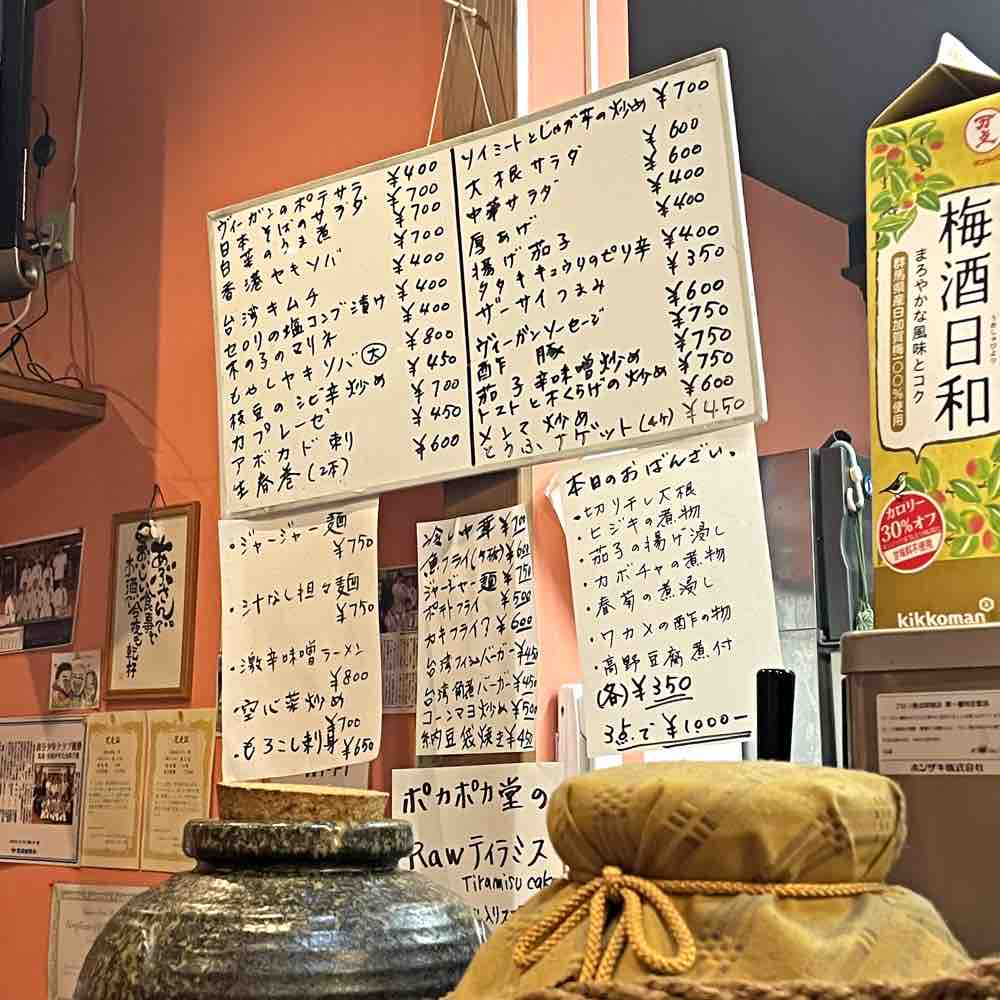 ヴィーガンのポテサラ ¥400
日本そばのサラダ ¥700
白菜のうま煮 ¥700
香港ヤキソバ ¥700
台湾キムチ ¥400
セロリの塩コンブ漬け ¥400
木の子のマリネ ¥400
もやしヤキソバ 大 ¥800
枝豆のシビ辛炒め ¥450
カプレーゼ ¥700
アボカド刺り ¥450
生春巻(2本) ¥600
ソイミートとじゃが芋の炒め ¥700
大根サラダ ¥600
中華サラダ ¥600
厚あげ ¥400
揚げ茄子 ¥400
タタキキュウリのピリ辛 ¥400
ザーサイつまみ ¥350
ヴィーガンソーセージ ¥600
酢豚 ¥750
茄子辛味噌炒め ¥750
トマトと木くらげの炒め ¥750
炒め ¥600
とうふナゲット(4ケ) ¥450
・ジャージャー麺
¥750
・汁なし担々麺
¥750
・激辛味噌ラーメン
¥800
・空心菜炒め
¥700
・もろこし刺身 ¥650
冷し中華 ¥700
魚フライ(タルタル) ¥600
ジャージャー麺 ¥750
ポテトフライ ¥500
カキフライ? ¥600
台湾フィッシュバーガー ¥450
台湾角煮バーガー ¥450
コーンマヨ炒め ¥500
納豆袋焼き ¥450
本日のおばんざい。
・切り干し大根
・ヒジキの煮物
・茄子の揚げ浸し
・カボチャの煮物
・春菊の煮浸し
・ワカメの酢の物
・高野豆腐煮付
(各)¥350
3点で¥1000ー
ポカポカ堂の
Rawティラミス
Tiramisu cak
梅酒日和
うめしゅびより
まろやかな風味とコク
群馬県産白加賀梅100%使用
カロリー
30%オフ
kikkoman
あぶさんの
おいしい食事で
お酒で今夜も乾杯
ホシザキ株式会社